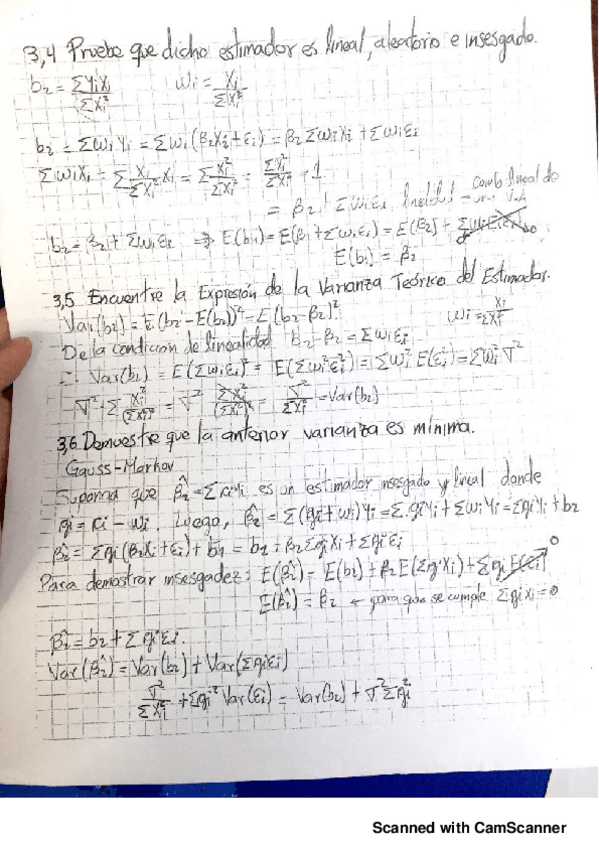 3,4 Pruebe que dicho estimador es lineal, aleatorio e insesgado.
b₂ = ΣYiXi / ΣXi²   wi = Xi / ΣXi²
b₂ = ΣwiYi = Σwi(β₂Xi+εi) = β₂ΣwiXi + Σwiεi
ΣwiXi = Σ Xi/ΣXi² Xi = Σ Xi²/ΣXi² = ΣXi²/ΣXi² = 1
= β₂ + Σwiεi comb lineal de
b₂ = β₂ + Σwiεi ⇒ E(b₁) = E(β₁ + Σwiεi) = E(β₂) + ΣwiE(εi) 0
E(b₁) = β₂
3,5 Encuentre la Expresión de la Varianza Teórica del Estimador.
Var(b₂) = E(b₂ - E(b₂))² = E(b₂-β₂)²   wi = Xi/ΣXi²
De la condición de linealidad b₂-β₂ = Σwiεi
∴ Var(b₂) = E(Σwiεi)² = E(Σwi²εi²) = Σwi² E(εi²) = Σwi² ∇²
∇² Σ Xi²/(ΣXi²)² = ∇² ΣXi²/(ΣXi²)² = ∇²/ΣXi² = Var(b₂)
3,6 Demuestre que la anterior varianza es mínima.
Gauss-Markov
Suponga que β̂₂ = ΣciYi es un estimador insesgado y lineal donde
gi = ci - wi. Luego, β̂₂ = Σ(gi+wi)Yi = ΣgiYi + ΣwiYi = ΣgiYi + b₂
β̂₂ = Σgi(β₂Xi+εi) + b₁ = b₂ + β₂ΣgiXi + Σgiεi
Para demostrar insesgadez: E(β̂₂) = E(b₂) + β₂E(ΣgiXi) + ΣgiE(εi) 0
E(β̂₂) = β₂ ← para que se cumple ΣgiXi=0
β̂₂ = b₂ + Σgiεi.
Var(β̂₂) = Var(b₂) + Var(Σgiεi)
∇²/ΣXi² + Σgi² Var(εi) = Var(b₂) + ∇²Σgi²
Scanned with CamScanner